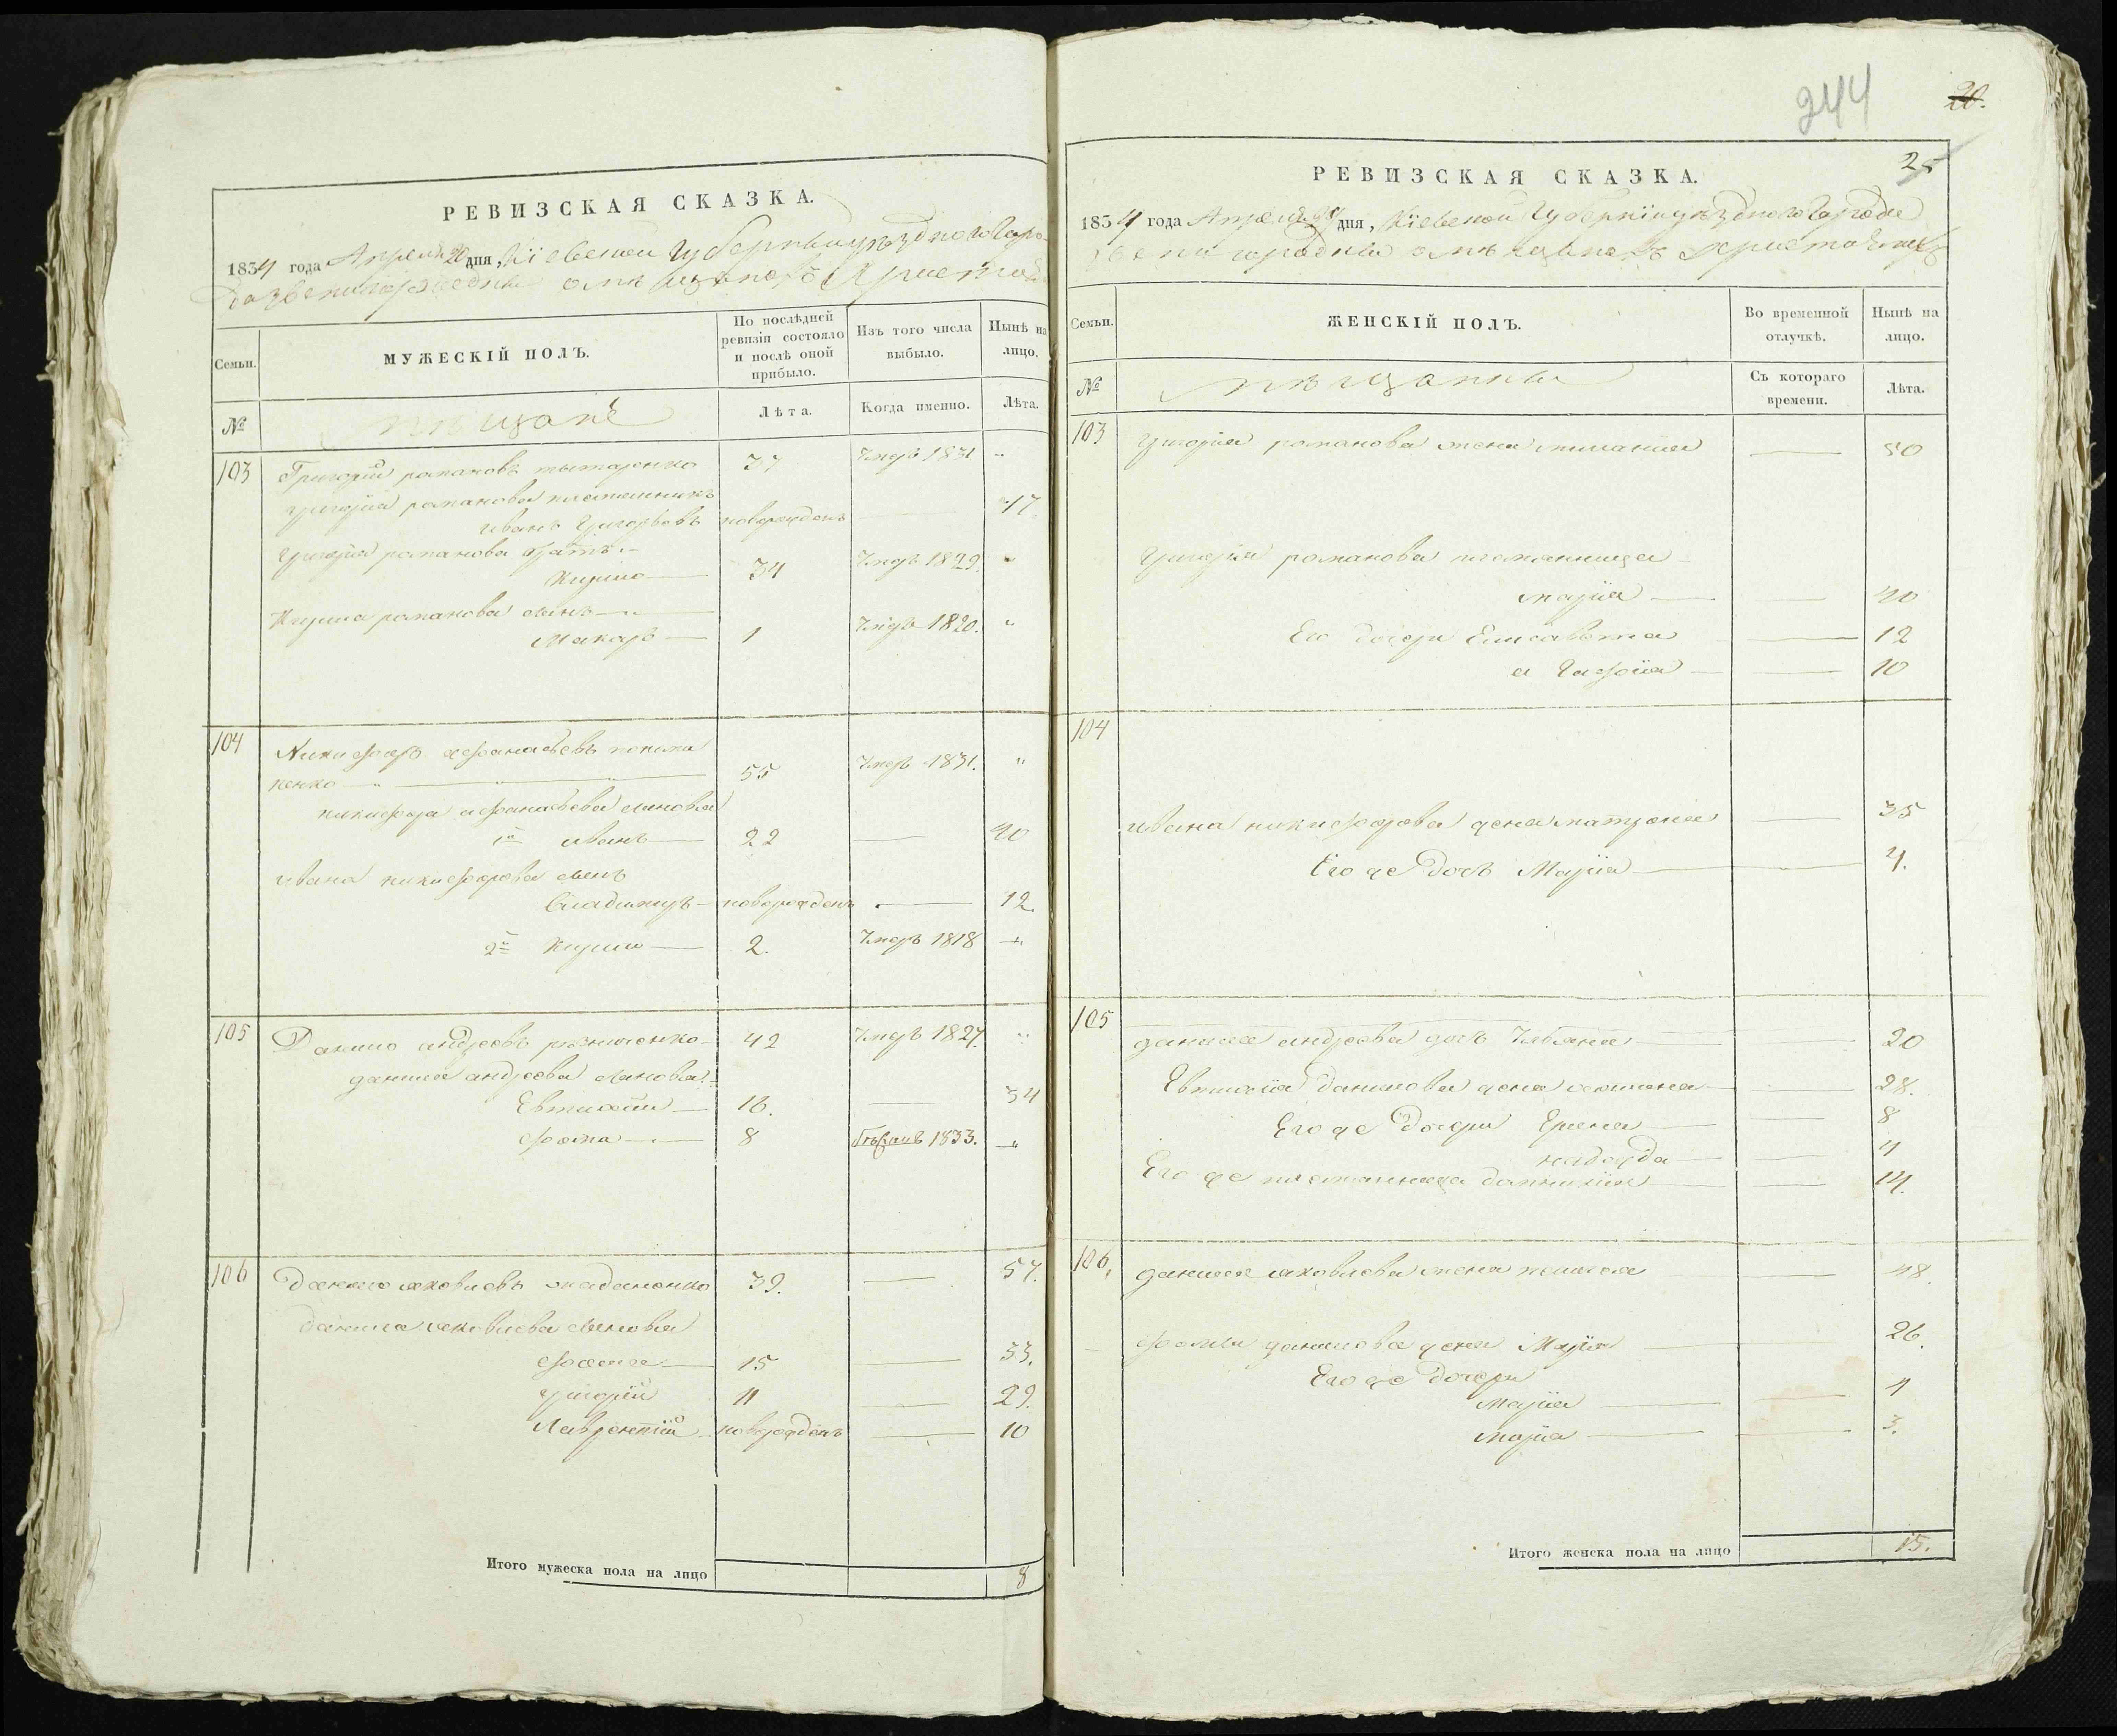 РЕВИЗСКАЯ СКАЗКА.
1834 года Апреля 20 дня, Кіевской Губерніи уѣзднаго Горо-
да Звенигородки о мѣщанахъ Христіа
Семьи.
МУЖЕСКІЙ ПОЛЪ.
По послѣдней ревизіи состояло и послѣ оной прибыло.
Изъ того числа выбыло.
Нынѣ на лицо.
№
мѣщане
Лѣта.
Когда именно.
Лѣта.
103 Григорій романовъ титаренко 37 Умеръ 1831 "
григорія романова племянникъ
иванъ Григорьевъ новорожденъ — 17.
Григорія романова братъ
Кирило 34 Умеръ 1829. "
Кирила романова сынъ
Макаръ 1 Умеръ 1820. "
104 Никифоръ афанасьевъ
ненко 55 Умеръ 1831. "
никифора афанасьева сыновья
1й иванъ 22 — 40
ивана никифорова сынъ
Владимиръ новорожденъ — 12.
2й Кирило 2. Умеръ 1818 "
105 Данило андреевъ 42 Умеръ 1827. "
данила андреева сыновья
Евтихій 16. — 34
фома 8 1833. "
106 Данило яковлевъ 39. — 57.
данила яковлева сыновья
фома 15 — 33.
григорій 11 — 29.
Лаврентій новорожденъ — 10
Итого мужеска пола на лицо 8
244
20.
25
РЕВИЗСКАЯ СКАЗКА.
1834 года Апреля 20 дня, Кіевской Губерніи уѣзднаго Города
Звенигородки о мѣщанахъ
Семьи.
ЖЕНСКІЙ ПОЛЪ.
Во временной отлучкѣ.
Нынѣ на лицо.
№
мѣщанки
Съ котораго времени.
Лѣта.
103 григорія романова жена — 50
Григорія романова племянница
марія — 40
Его дочери Елисавета — 12
— 10
104
ивана никифорова жена матрона — 35
Его же дочь Марія — 4.
105 данила андреева дочь Ульяна — 20
Евтихія данилова жена — 28.
Его же дочери Ирина — 8
надежда — 4
Его же племянница — 14.
106. данила яковлева жена — 48.
фомы данилова жена Марія — 26.
Его же дочери
марія — 4
марія — 3.
Итого женска пола на лицо 15.